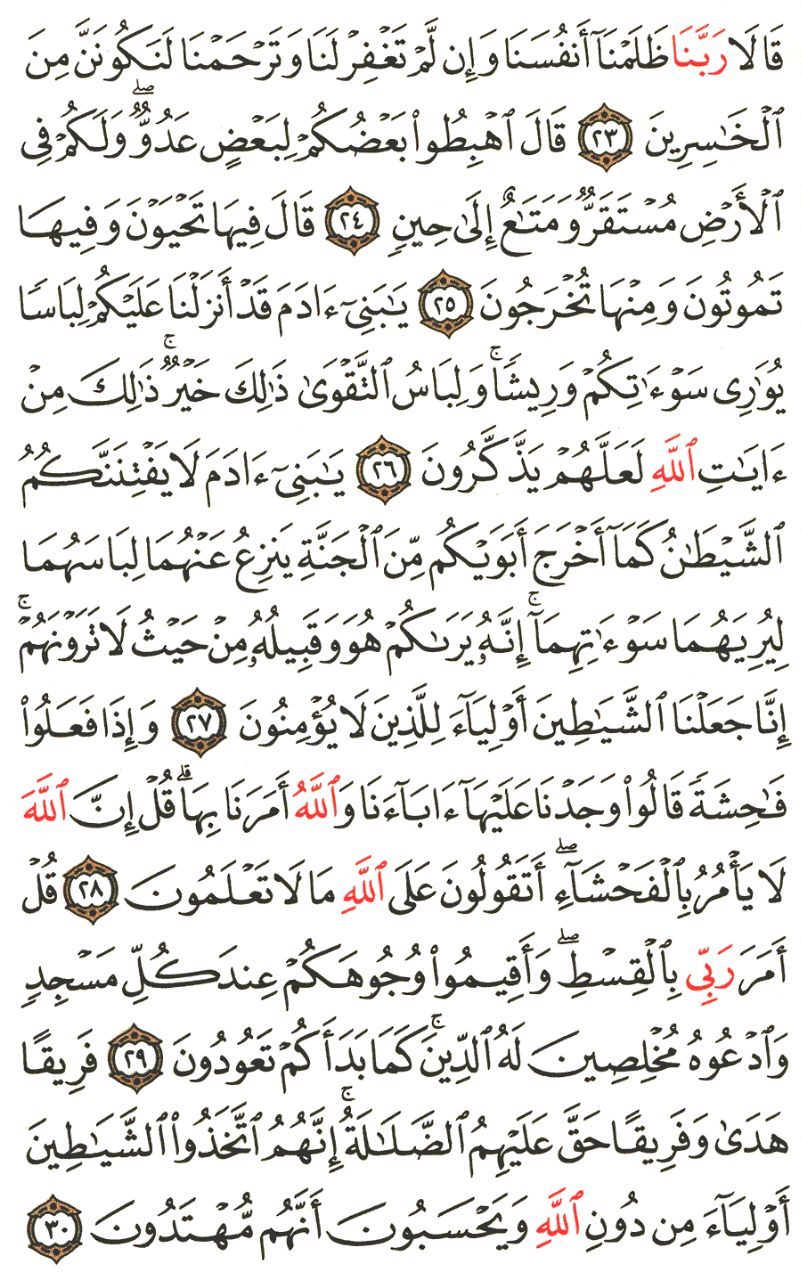 قَالَا رَبَّنَا ظَلَمْنَآ أَنفُسَنَا وَإِن لَّمْ تَغْفِرْ لَنَا وَتَرْحَمْنَا لَنَكُونَنَّ مِنَ
ٱلْخَٰسِرِينَ ٢٣ قَالَ ٱهْبِطُوا۟ بَعْضُكُمْ لِبَعْضٍ عَدُوٌّ ۖ وَلَكُمْ فِى
ٱلْأَرْضِ مُسْتَقَرٌّ وَمَتَٰعٌ إِلَىٰ حِينٍ ٢٤ قَالَ فِيهَا تَحْيَوْنَ وَفِيهَا
تَمُوتُونَ وَمِنْهَا تُخْرَجُونَ ٢٥ يَٰبَنِىٓ ءَادَمَ قَدْ أَنزَلْنَا عَلَيْكُمْ لِبَاسًا
يُوَٰرِى سَوْءَٰتِكُمْ وَرِيشًا ۖ وَلِبَاسُ ٱلتَّقْوَىٰ ذَٰلِكَ خَيْرٌ ۚ ذَٰلِكَ مِنْ
ءَايَٰتِ ٱللَّهِ لَعَلَّهُمْ يَذَّكَّرُونَ ٢٦ يَٰبَنِىٓ ءَادَمَ لَا يَفْتِنَنَّكُمُ
ٱلشَّيْطَٰنُ كَمَآ أَخْرَجَ أَبَوَيْكُم مِّنَ ٱلْجَنَّةِ يَنزِعُ عَنْهُمَا لِبَاسَهُمَا
لِيُرِيَهُمَا سَوْءَٰتِهِمَآ ۚ إِنَّهُۥ يَرَىٰكُمْ هُوَ وَقَبِيلُهُۥ مِنْ حَيْثُ لَا تَرَوْنَهُمْ ۗ
إِنَّا جَعَلْنَا ٱلشَّيَٰطِينَ أَوْلِيَآءَ لِلَّذِينَ لَا يُؤْمِنُونَ ٢٧ وَإِذَا فَعَلُوا۟
فَٰحِشَةً قَالُوا۟ وَجَدْنَا عَلَيْهَآ ءَابَآءَنَا وَٱللَّهُ أَمَرَنَا بِهَا ۗ قُلْ إِنَّ ٱللَّهَ
لَا يَأْمُرُ بِٱلْفَحْشَآءِ ۖ أَتَقُولُونَ عَلَى ٱللَّهِ مَا لَا تَعْلَمُونَ ٢٨ قُلْ
أَمَرَ رَبِّى بِٱلْقِسْطِ ۖ وَأَقِيمُوا۟ وُجُوهَكُمْ عِندَ كُلِّ مَسْجِدٍ
وَٱدْعُوهُ مُخْلِصِينَ لَهُ ٱلدِّينَ ۚ كَمَا بَدَأَكُمْ تَعُودُونَ ٢٩ فَرِيقًا
هَدَىٰ وَفَرِيقًا حَقَّ عَلَيْهِمُ ٱلضَّلَٰلَةُ ۚ إِنَّهُمُ ٱتَّخَذُوا۟ ٱلشَّيَٰطِينَ
أَوْلِيَآءَ مِن دُونِ ٱللَّهِ وَيَحْسَبُونَ أَنَّهُم مُّهْتَدُونَ ٣٠